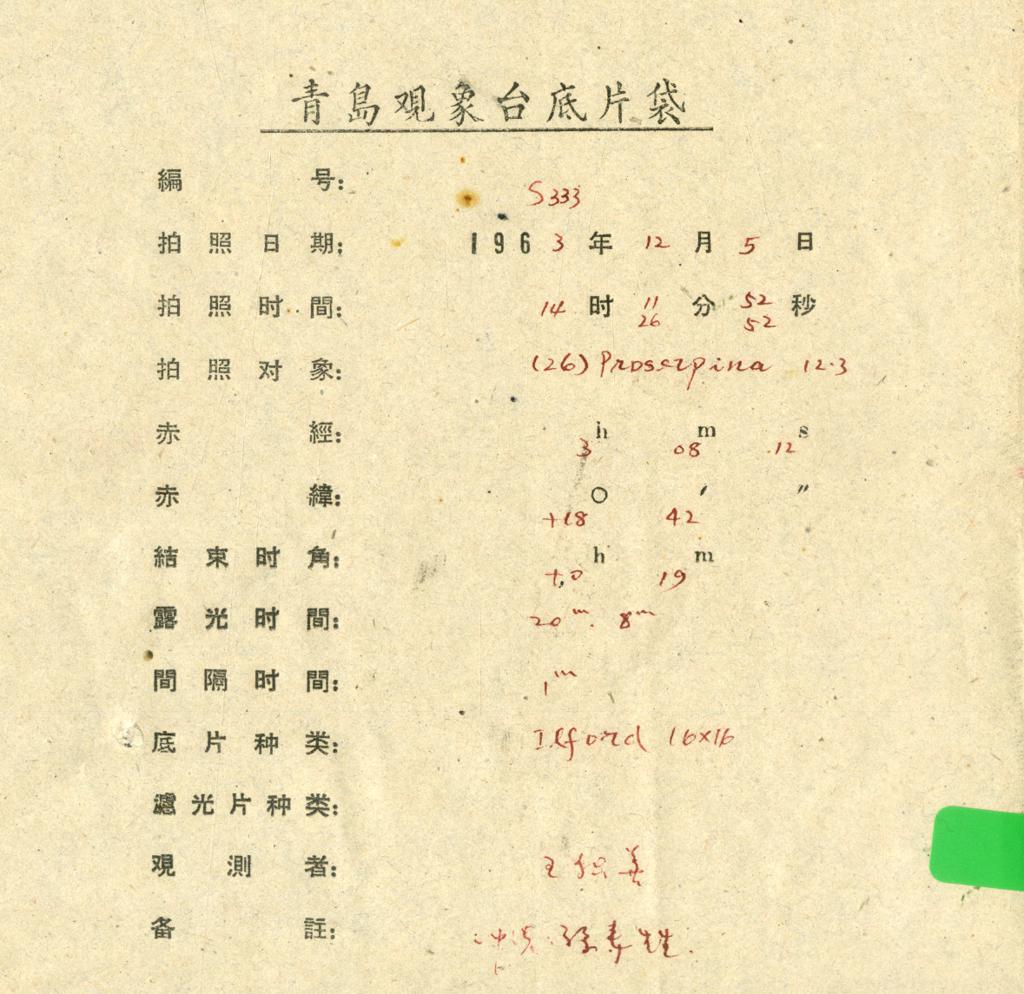 青島观象台底片袋
編 号: S333
拍照日期: 1963年12月5日
拍照时間: 14时11分52秒
26 52
拍照对象: (26) Proserpina 12.3
赤 經: 3h 08m 12s
赤 緯: +18° 42′ ″
結束时角: +0h 19m
露光时間: 20m. 8m
間隔时間: 1m
底片种类: Ilford 16×16
濾光片种类:
观測者: 王 善
备 註: